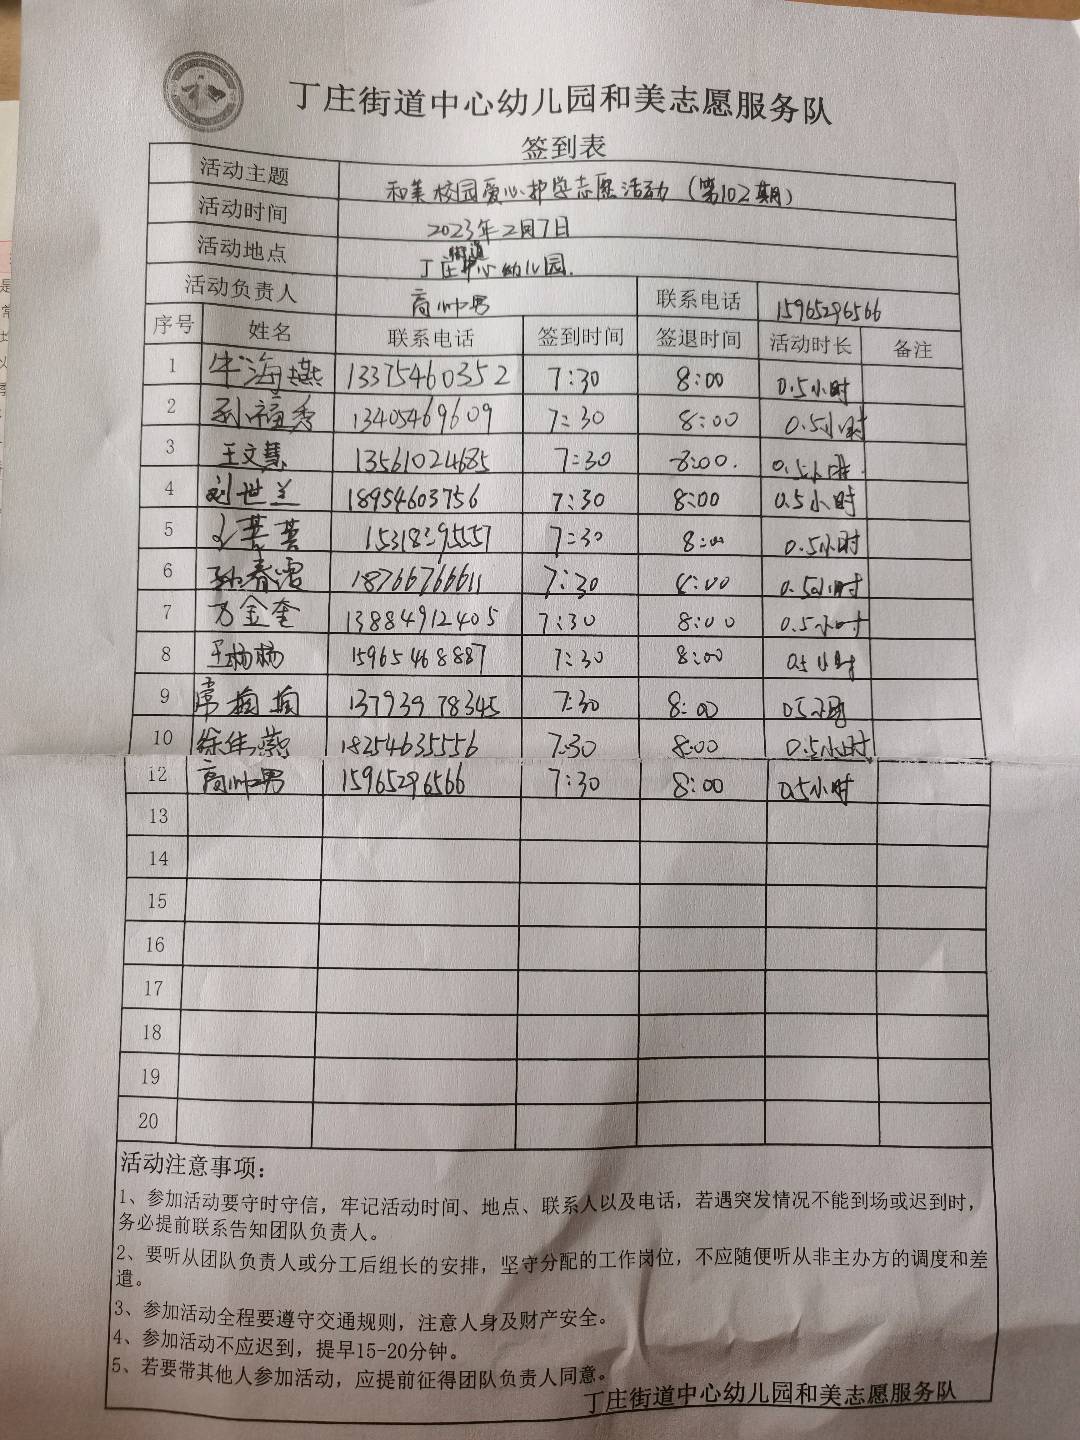 和
丁庄街道中心幼儿园和美志愿服务队
签到表
活动主题 和美校园爱心护学志愿活动(第102期)
活动时间 2023年2月7日
活动地点 丁庄街道中心幼儿园.
活动负责人 高帅男 联系电话 15965296566
序号 姓名 联系电话 签到时间 签退时间 活动时长 备注
1 牛海燕 13375460352 7:30 8:00 0.5小时
2 孙福秀 13405469609 7:30 8:00 0.5小时
3 王文慧 13561024685 7:30 8:00. 0.5小时.
4 刘世兰 18954603756 7:30 8:00 0.5小时
5 15318395557 7:30 8:00 0.5小时
6 孙春霞 18766766611 7:30 8:00 0.5小时
7 万金奎 13884912405 7:30 8:00 0.5小时
8 王杨杨 15965468887 7:30 8:00 0.5小时
9 常 13793978345 7:30 8:00 0.5小时
10 徐伟燕 18254635556 7:30 8:00 0.5小时
12 高帅男 15965296566 7:30 8:00 0.5小时
13
14
15
16
17
18
19
20
活动注意事项：
1、参加活动要守时守信，牢记活动时间、地点、联系人以及电话，若遇突发情况不能到场或迟到时，
务必提前联系告知团队负责人。
2、要听从团队负责人或分工后组长的安排，坚守分配的工作岗位，不应随便听从非主办方的调度和差
遣。
3、参加活动全程要遵守交通规则，注意人身及财产安全。
4、参加活动不应迟到，提早15-20分钟。
5、若要带其他人参加活动，应提前征得团队负责人同意。
丁庄街道中心幼儿园和美志愿服务队